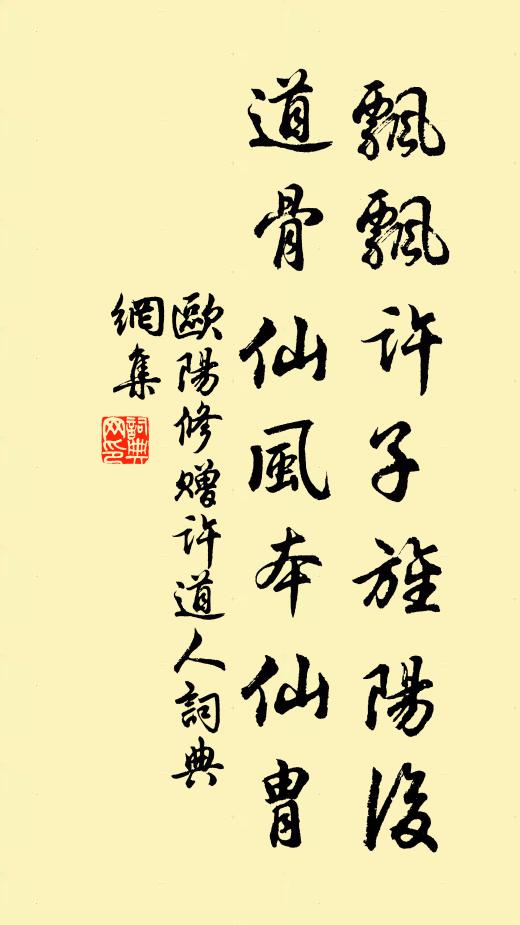 飄飄許子旌陽後
道骨仙風本仙胄
歐陽修贈許道人詞典
網集
詞典網印